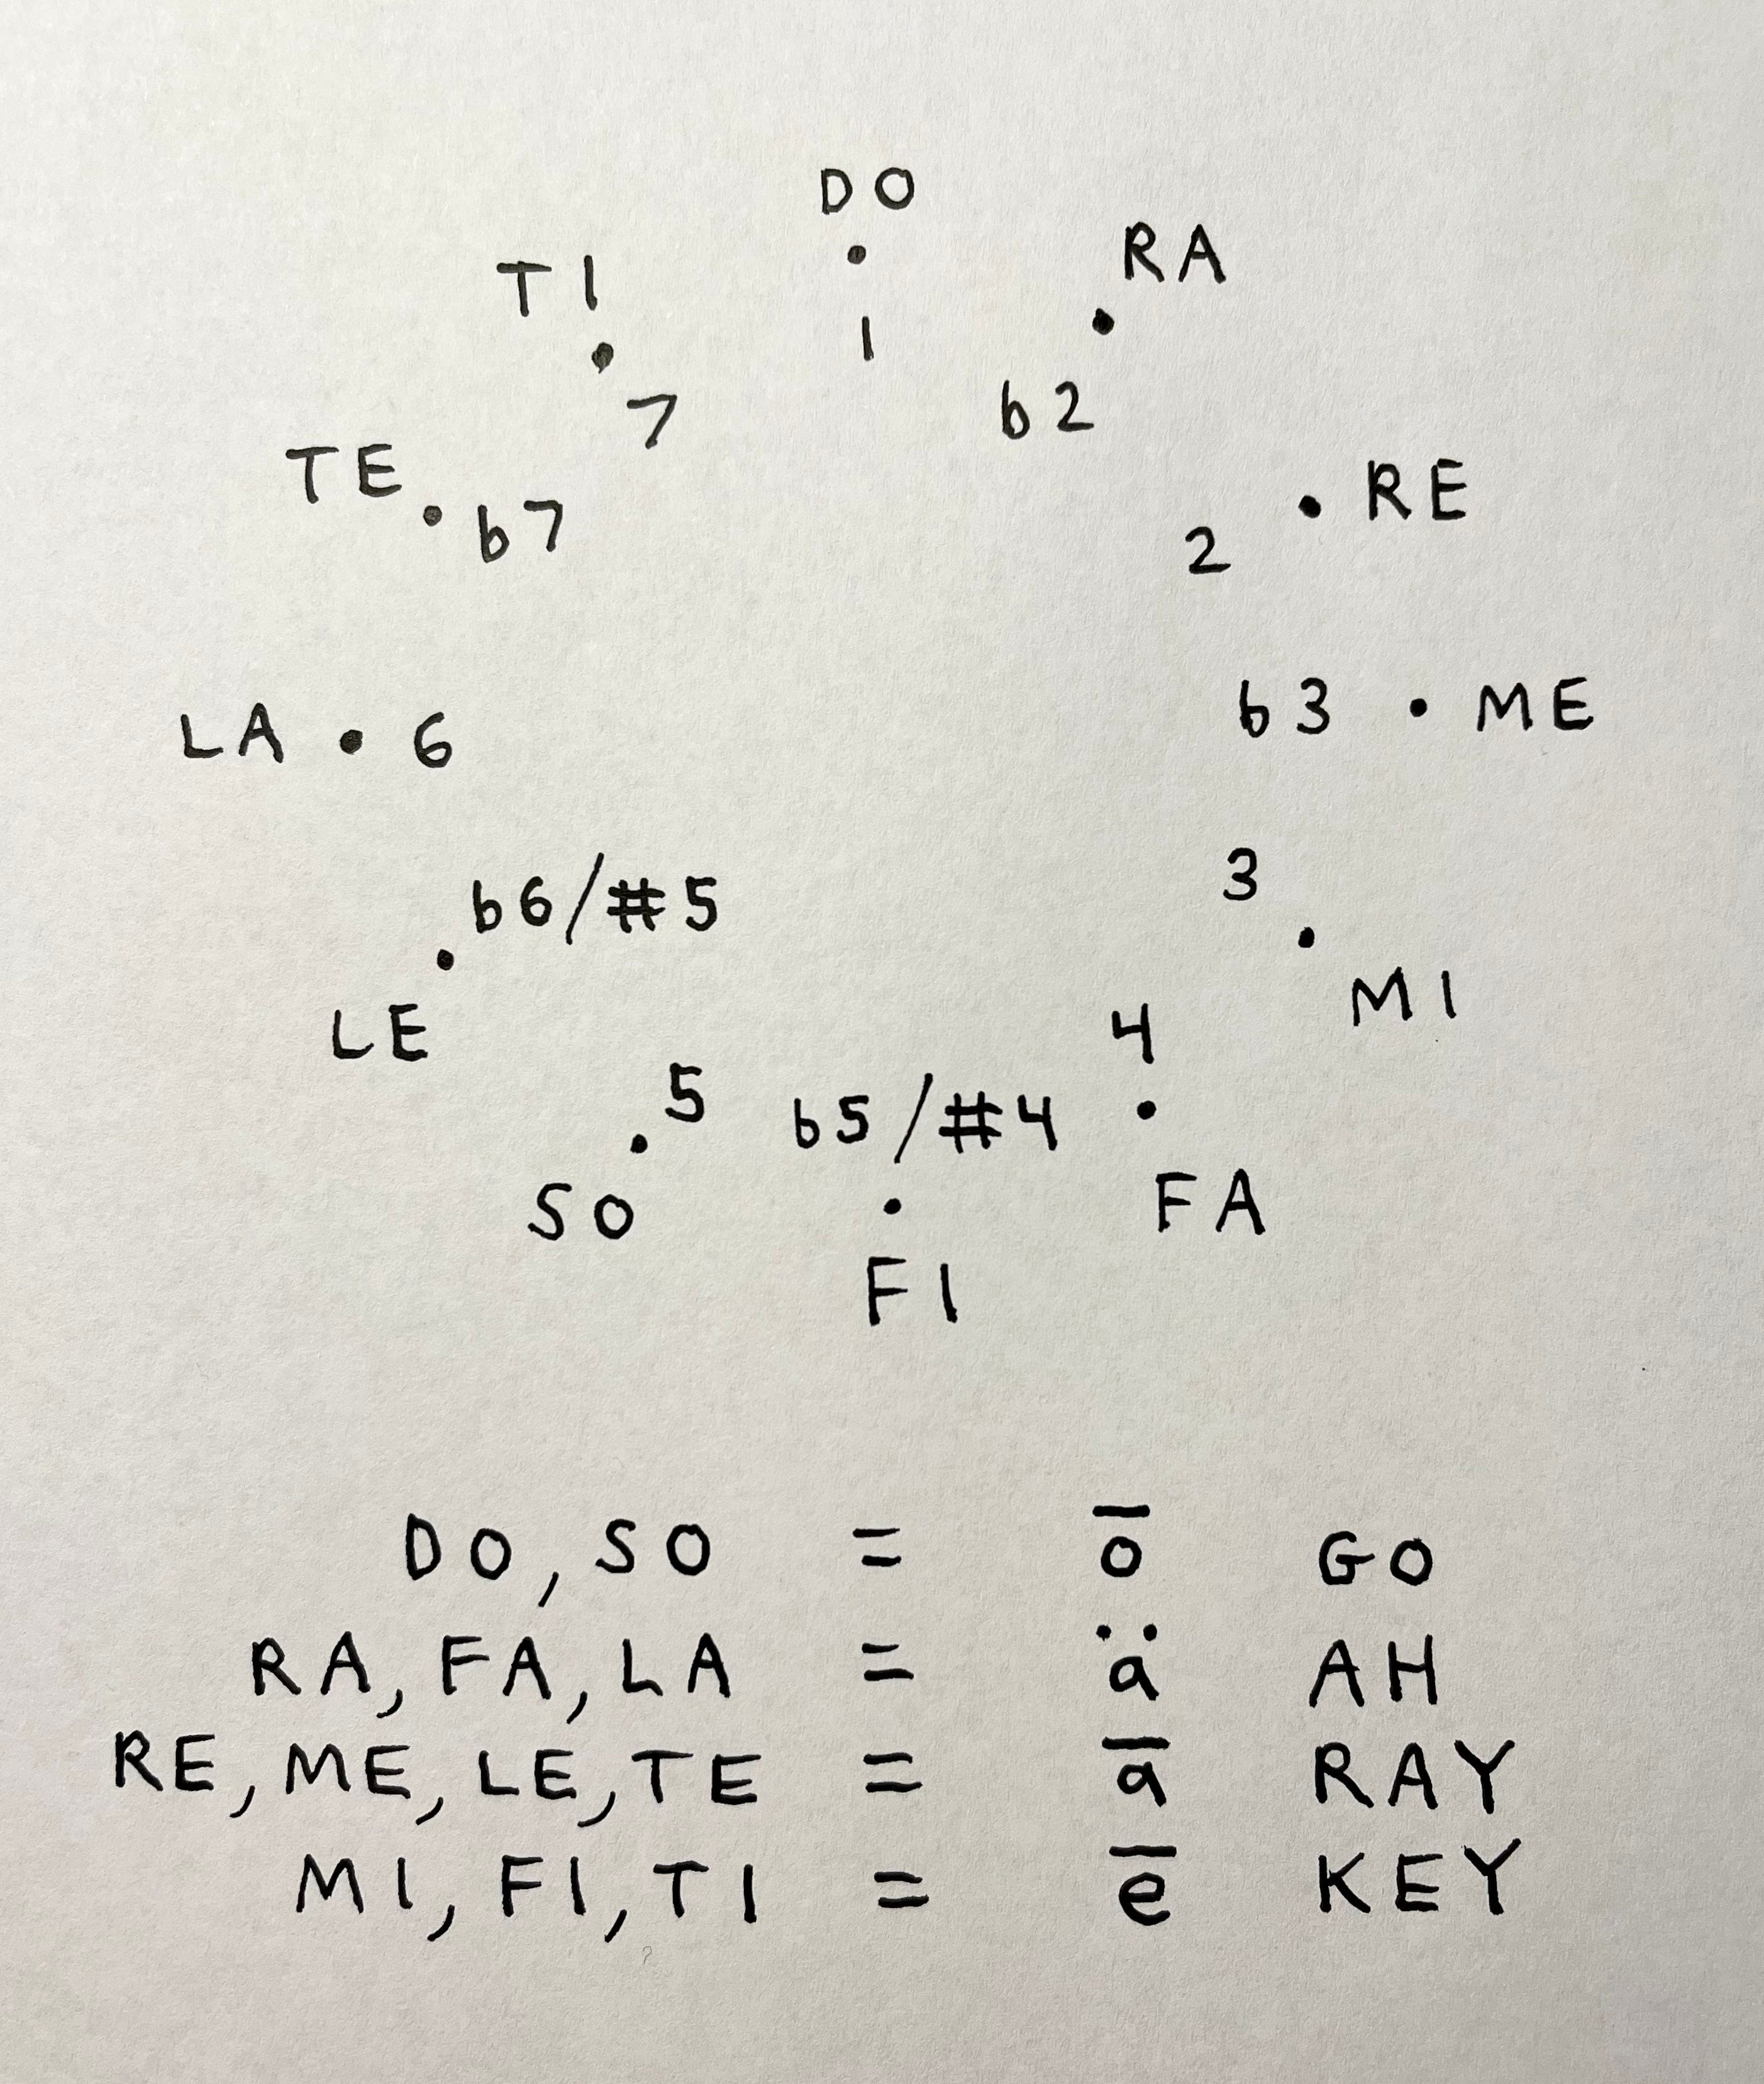 DO
1
RA
b2
RE
2
b3 ME
3
MI
4
FA
b5/#4
FI
5
SO
b6/#5
LE
LA 6
TE b7
TI
7
DO, SO = ō GO
RA, FA, LA = ä AH
RE, ME, LE, TE = ā RAY
MI, FI, TI = ē KEY